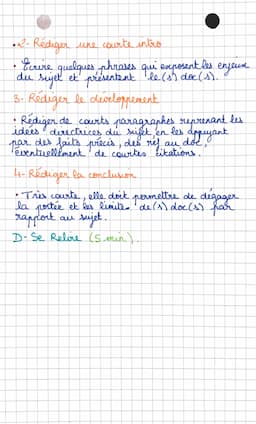 • 2- Rédiger une courte intro
• Ecrire quelques phrases qui exposent les enjeux
du sujet et présentent le(s) doc(s).
3- Rédiger le développement
• Rédiger de courts paragraphes reprenant les
idées directrices du sujet en les appuyant
par des faits précis, des réf au doc,
éventuellement de courtes citations.
4- Rédiger la conclusion
• Très courte, elle doit permettre de dégager
la portée et les limites de(s) doc(s) par
rapport au sujet.
D- Se Relire (5 min).